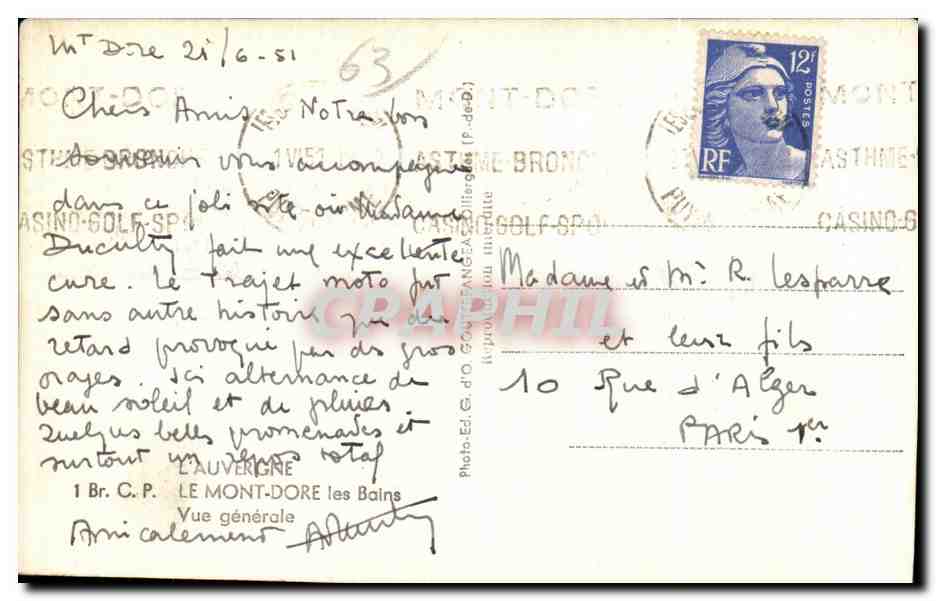 Mt Dore 21/6-51
63
Chers Amis, Notre bon
souvenir vous accompagne
dans ce joli site où Madame
fait une excellente
cure. Le trajet moto fut
sans autre histoire que du
retard provoqué par des gros
orages. Ici alternance de
beau soleil et de pluies.
Quelques belles promenades et
surtout un repos total
Amicalement
L'AUVERGNE
1 Br. C. P. LE MONT-DORE les Bains
Vue générale
Photo-Ed. G. d'O. GOUTTEFANGEAS, Olliergues (P.-de-D.)
Reproduction interdite
CPAPHIL
MONT-DORE
ASTHME-BRONCHES
CASINO-GOLF-SPORTS
MONT-DORE
ASTHME-BRONC
CASINO-GOLF-SPO
MONT
ASTHME-
CASINO-G
12F
POSTES
RF
Madame et Mr R. Lesparre
et leurs fils
10 Rue d'Alger
PARIS 1er